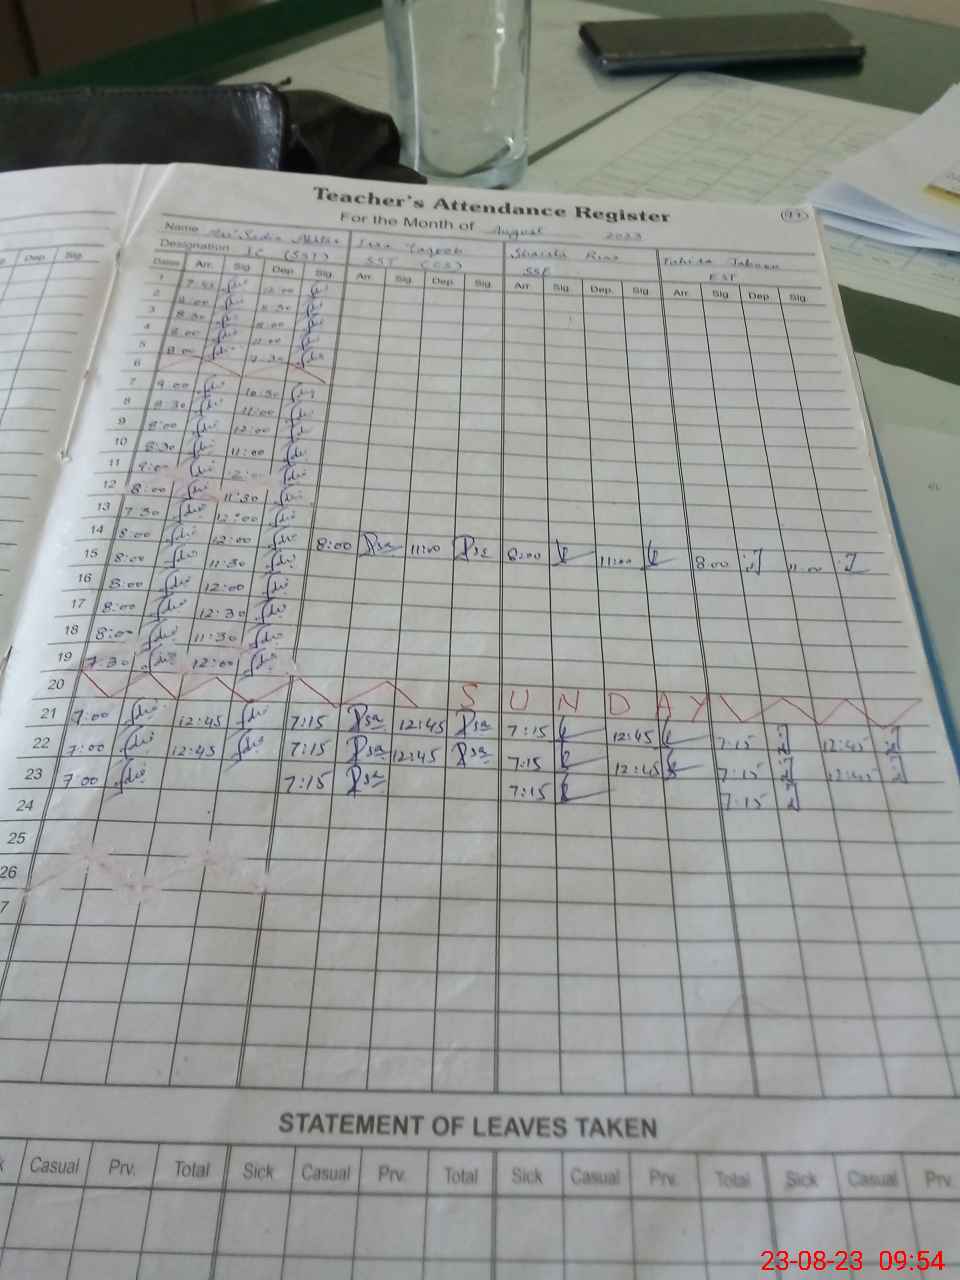 Teacher's Attendance Register
For the Month of August 2023
Name Sadia Akhtar Isra Yaqoob Shaista Riaz Tahira Jabeen
Designation IC (SST) SST (CS) SSE EST
Dep. Sig. Dates Arr. Sig. Dep. Sig. Arr. Sig. Dep. Sig. Arr. Sig. Dep. Sig. Arr. Sig. Dep. Sig.
1 7:45 12:00
2 8:00
3 8:30
4 8:00
5 8:00 7:30
6
7 9:00 10:30
8 8:30 11:00
9 8:00 12:00
10 8:30 11:00
11 8:00
12 8:00 11:30
13 7:30 12:00
14 8:00 12:00
15 8:00 11:30 8:00 11:00 8:00 11:00 8:00 11:00
16 8:00 12:00
17 8:00 12:30
18 8:00 11:30
19 7:30 12:00
20 SUNDAY
21 7:00 12:45 7:15 12:45 7:15 12:45 7:15 12:45
22 7:00 12:45 7:15 12:45 7:15 12:45 7:15 12:45
23 7:00 7:15 7:15 7:15
24
25
26
7
STATEMENT OF LEAVES TAKEN
Casual Prv. Total Sick Casual Prv. Total Sick Casual Prv. Total Sick Casual Prv.
23-08-23 09:54